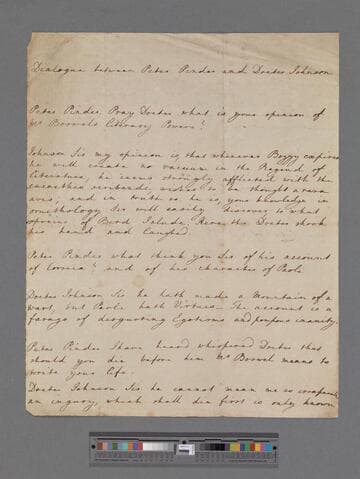 Dialogue between Peter Pindar and Doctor Johnson
Peter Pindar. Pray Doctor what is your opinion of
Mr Boswels Literary Powers?
Johnson Sir my opinion is, that whenever Bozzy expires
he will create no vacuum in the Regions of
Literature, he seems strongly afflicted with the
cacoethes scribendi, wishes to be thought a rara
avis, and in truth so he is, your knowledge in
ornithology Sir will easily discover to what
species of Bird I allude, Here the Doctor shook
his head and laughed.
Peter Pindar what think you Sir of his account
of Corsica? and of his character of Paoli
Doctor Johnson Sir he hath made a Mountain of a
wart, but Paoli hath Virtues. The account is a
farago of disgusting Egotism and pompous inanity.
Peter Pindar I have heard whispered Doctor that
should you die before him Mr Boswel means to
write your Life.
Doctor Johnson Sir he cannot mean me so irreparable
an injury, which shall die first is only known